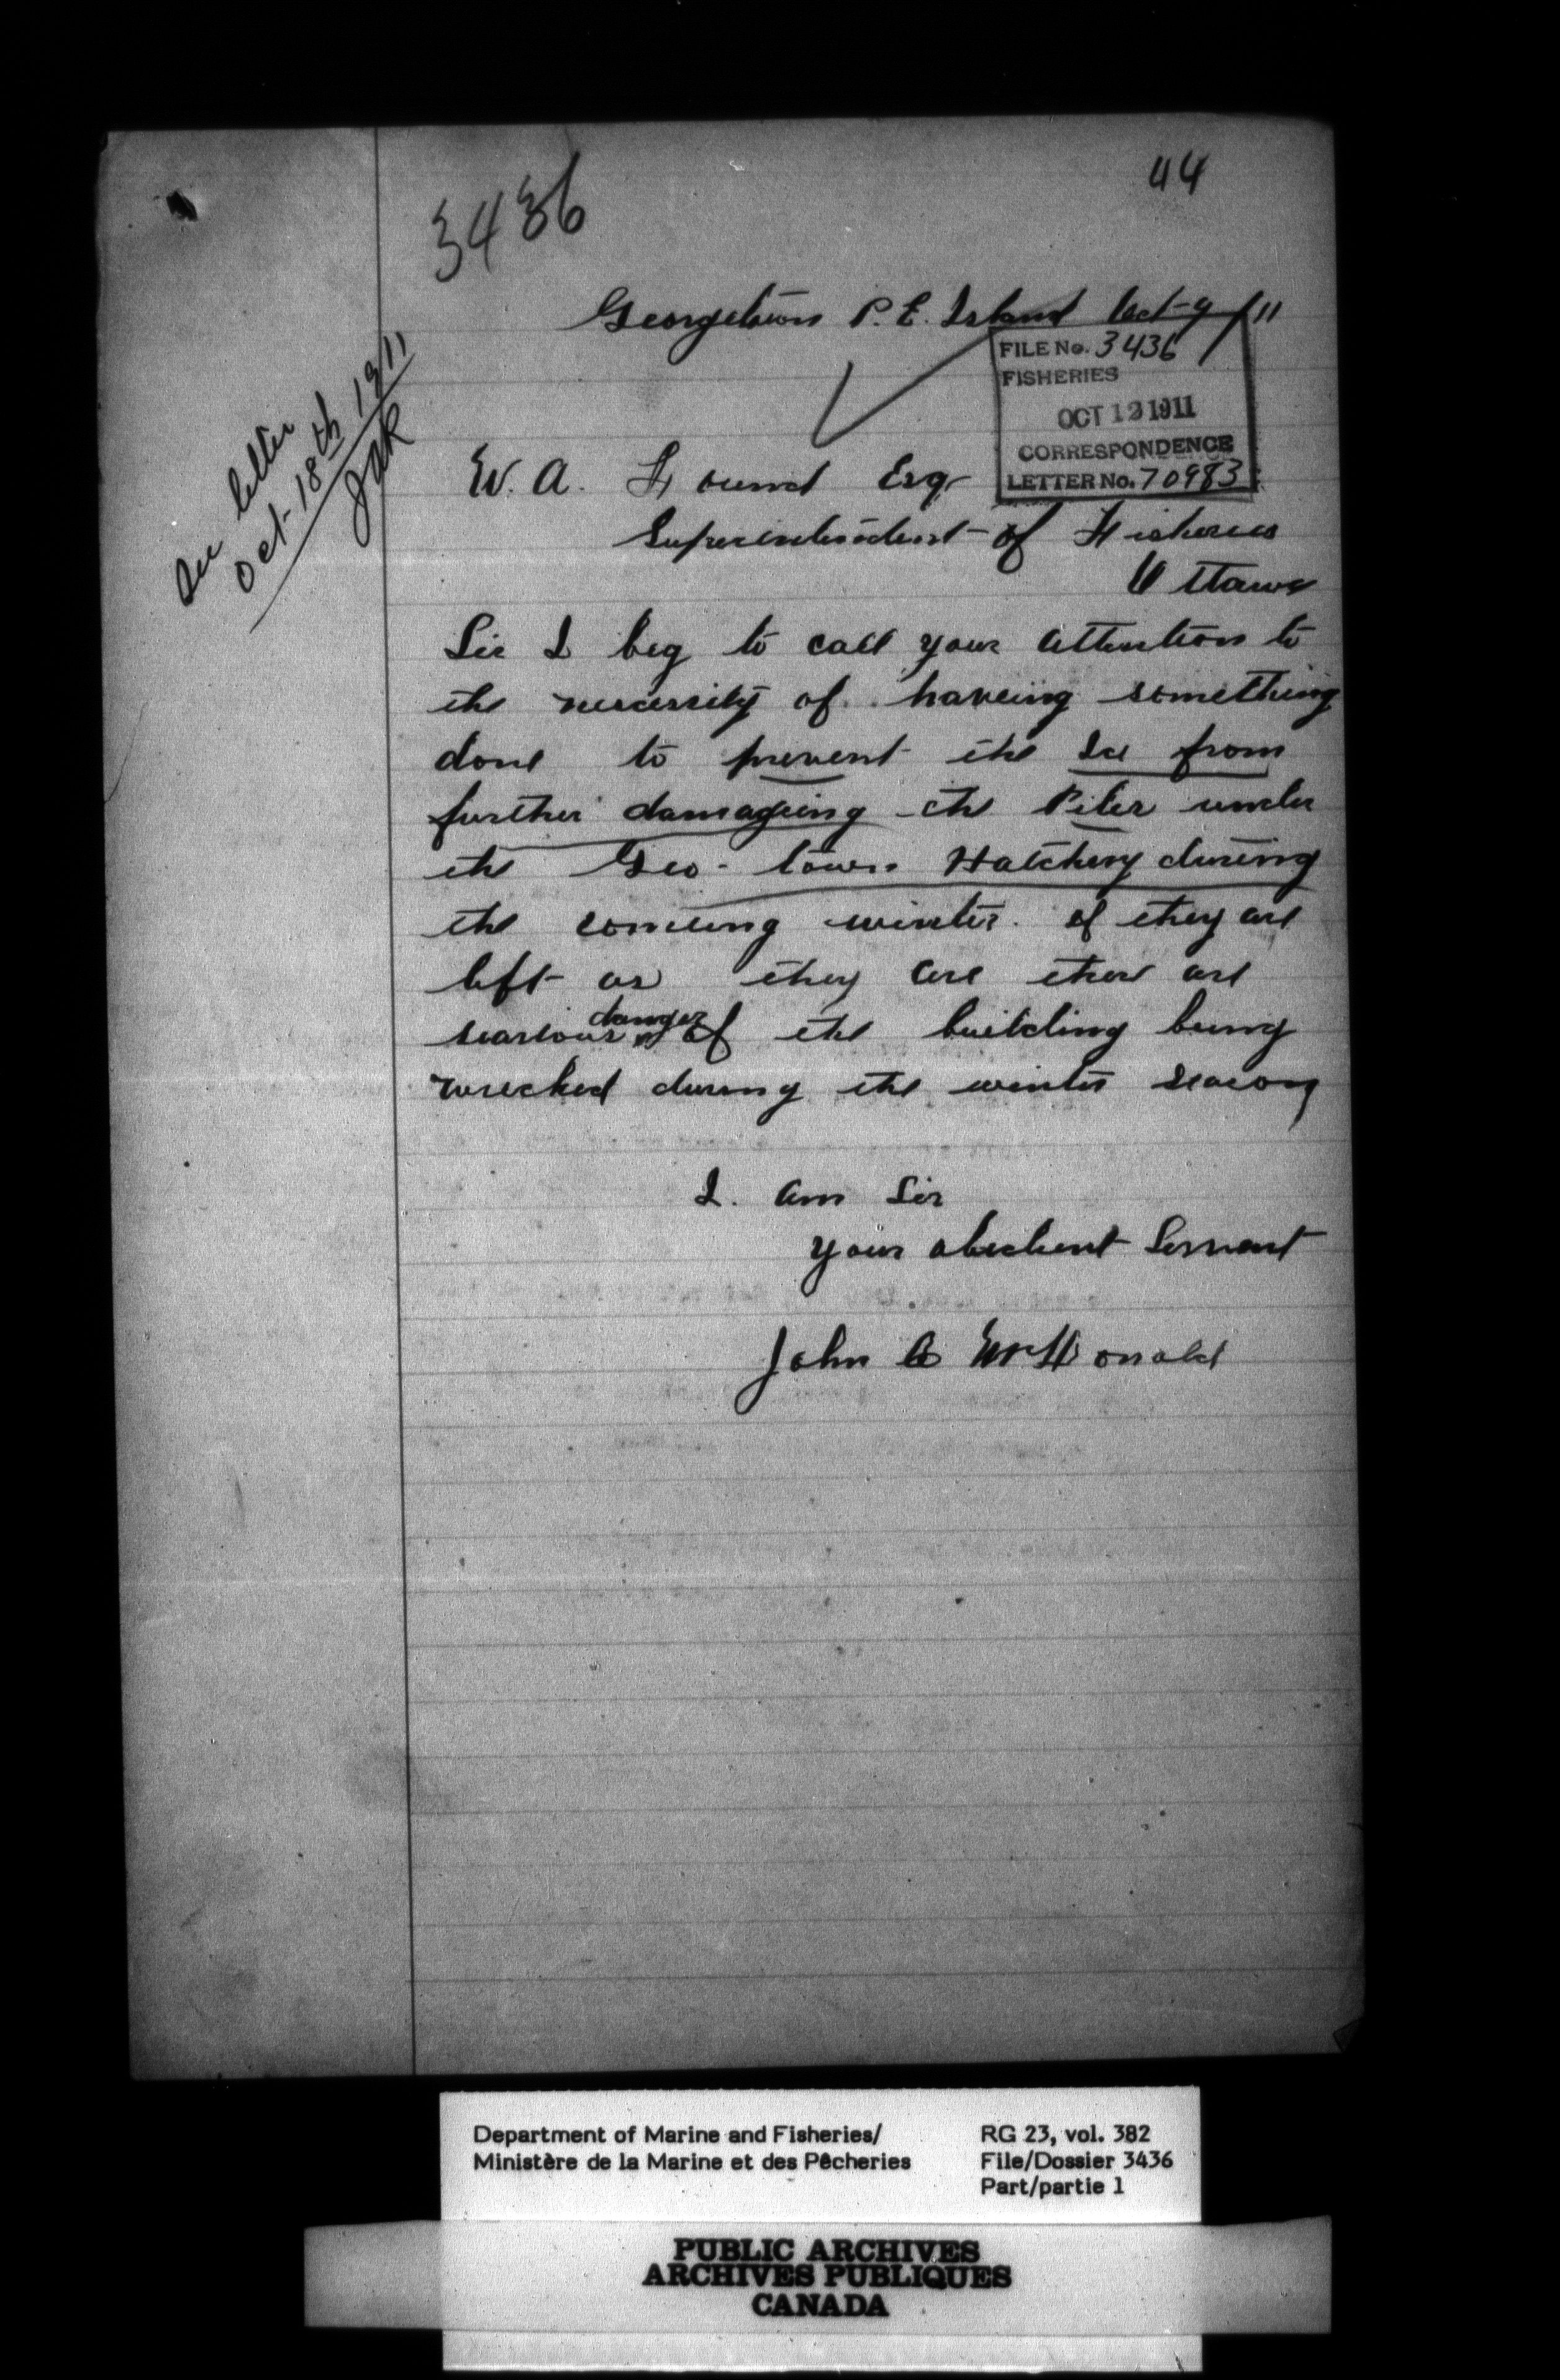 44
3436
Georgetown P. E. Island Oct 9/11
FILE No. 3436
FISHERIES
OCT 12 1911
CORRESPONDENCE
LETTER No. 70983
See letter
Oct. 18th 1911
W. A. Found Esq
Superintendent of Fisheries
Ottawa
Sir I beg to call your attention to
the necessity of haveing something
done to prevent the Ice from
further damageing the Piles under
the Geo-town Hatchery during
the comeing winter. if they are
left as they are ther are
searious danger of the building being
wrecked during the winter season
I. am Sir
your obedient Servant
John A McDonald
Department of Marine and Fisheries/
Ministère de la Marine et des Pêcheries
RG 23, vol. 382
File/Dossier 3436
Part/partie 1
PUBLIC ARCHIVES
ARCHIVES PUBLIQUES
CANADA